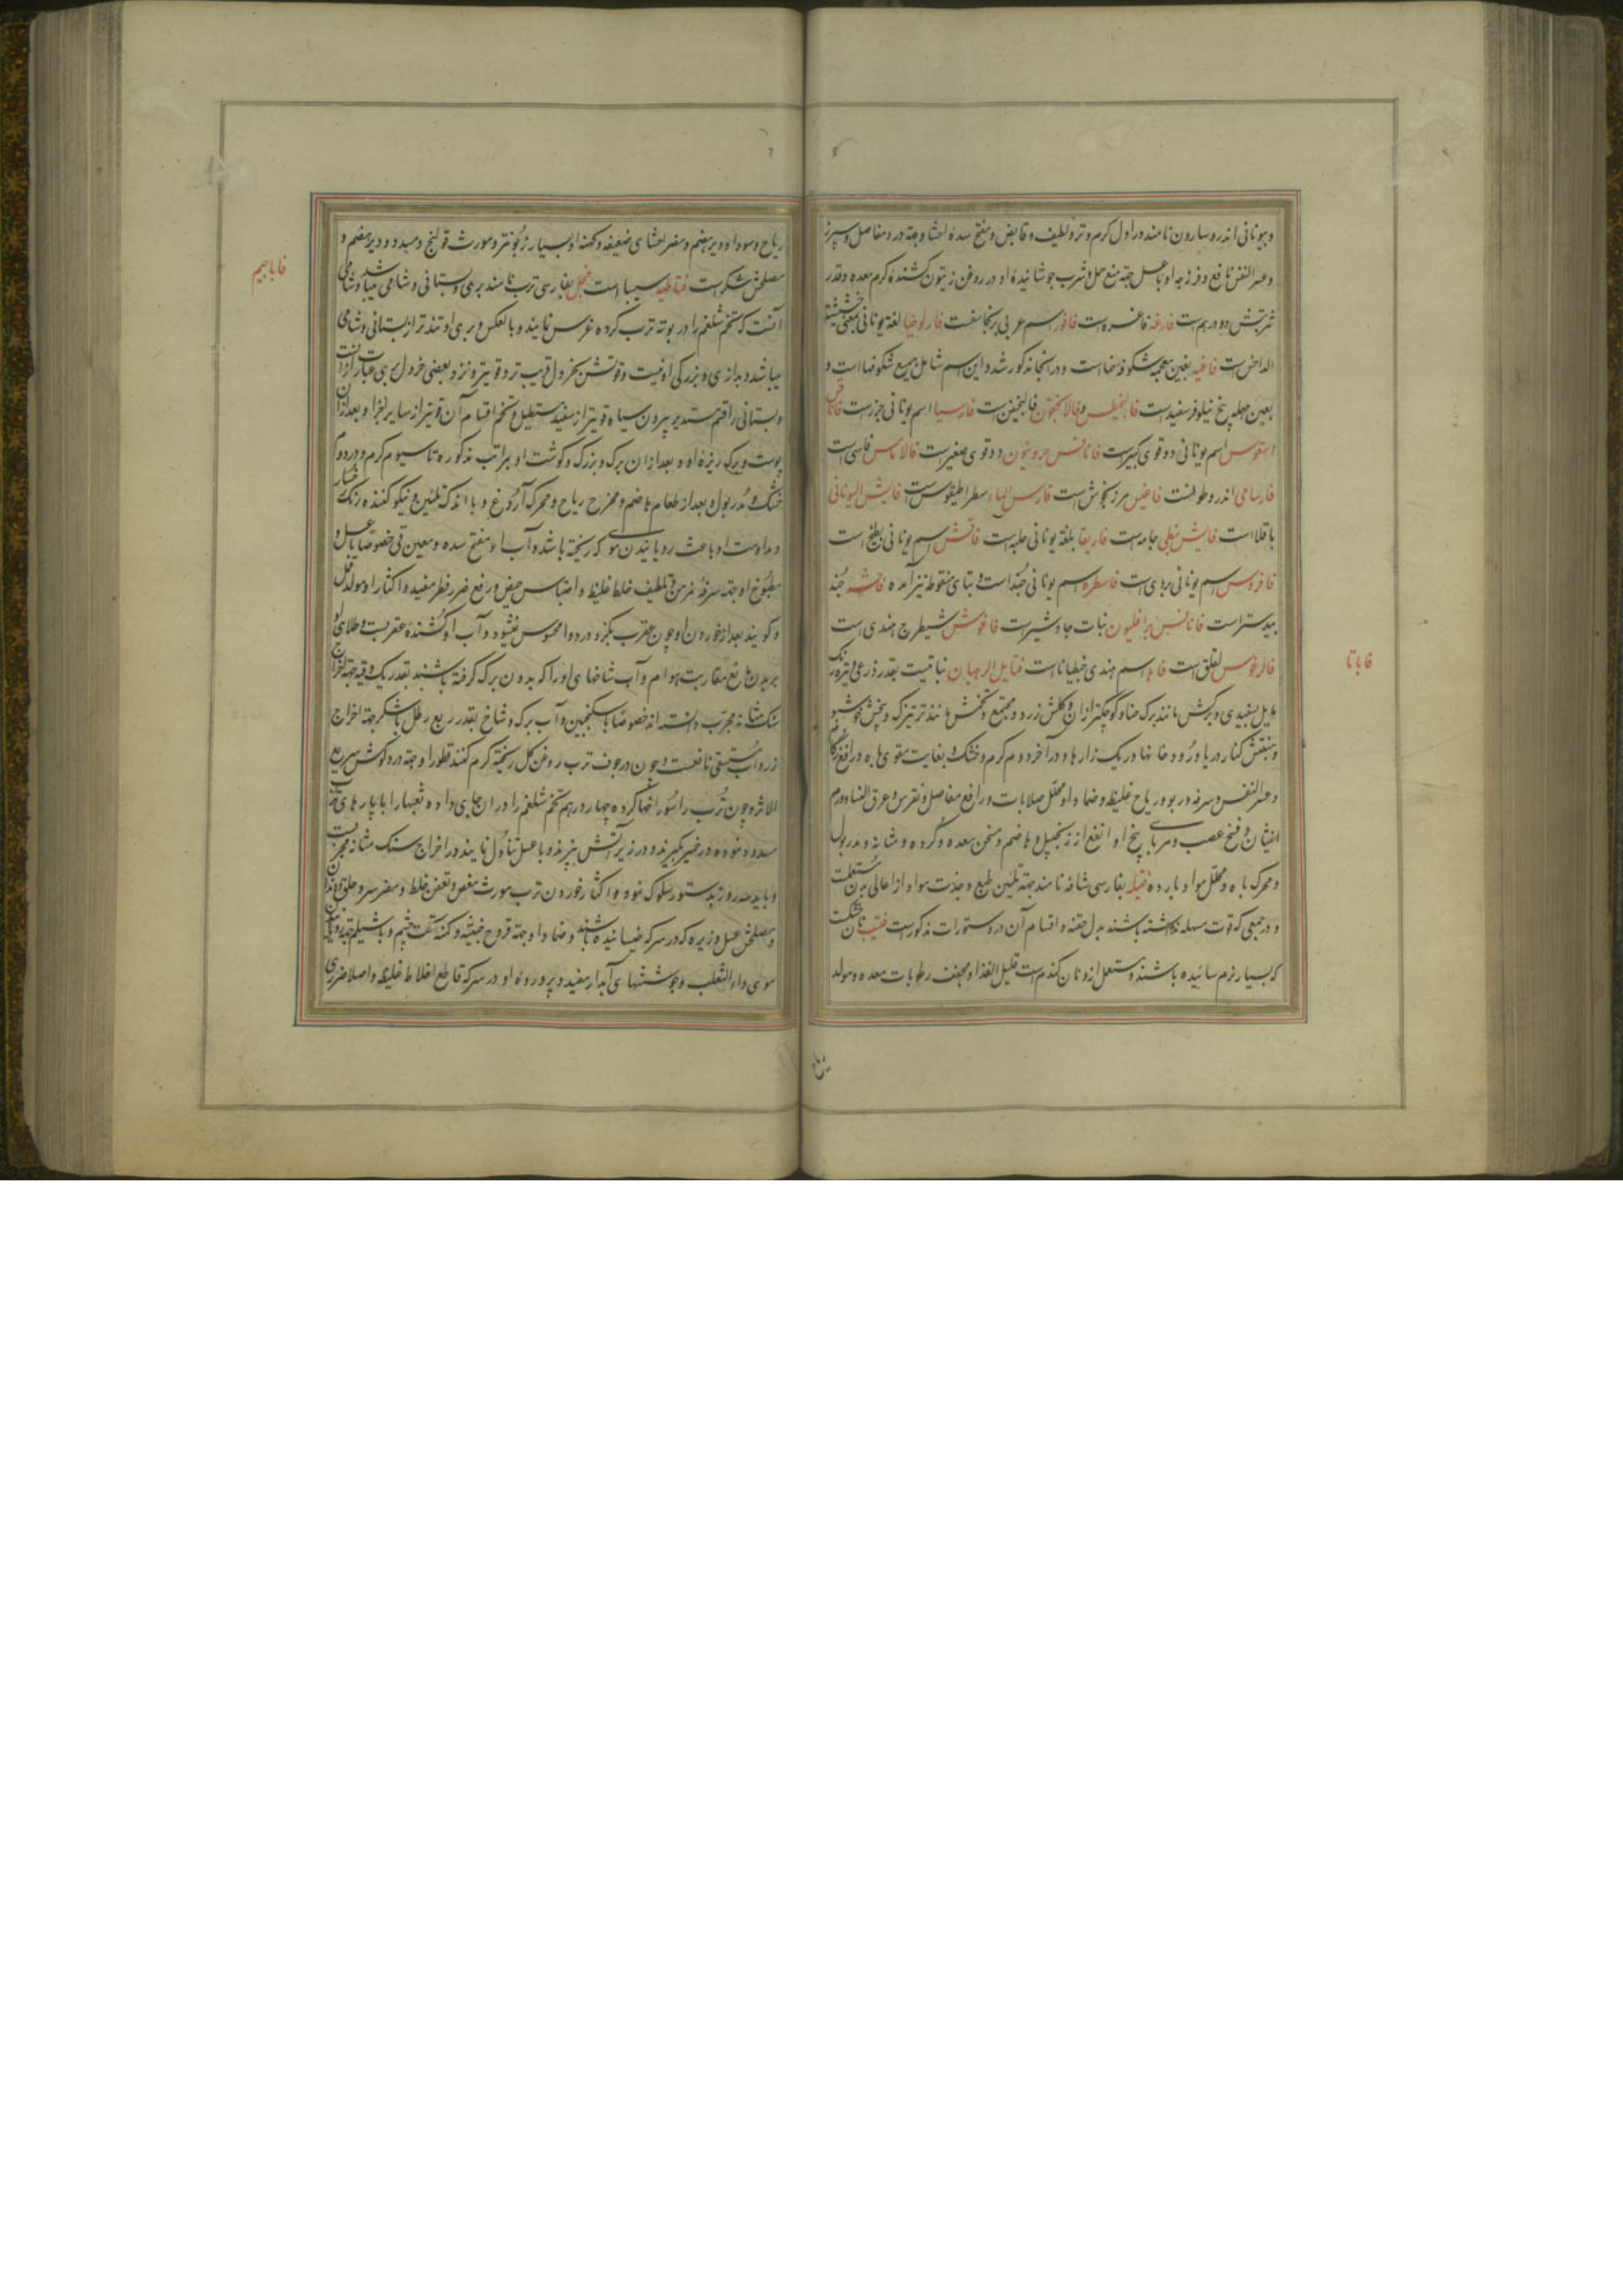 وبیونانی اندروسارون نامند در اول کرم وتر ولطیف وقابض ومفتح سدهٔ احشا وجهة درد مفاصل وسپرز
وعسر النفس نافع وفرزجه او باعسل جهة منع حمل وشرب جوشانیدهٔ او در روغن زیتون کشندهٔ کرم معده وقدر
شربتش دو درهم است فارغه فاغره است فافور اسم عربی برنجاسفت فارلوخیا لغة یونانی بمعنی خشیشة
الداحس است فاغیه بغین معجمه شکوفه حنا است ودر انجا مذکور شد واین اسم شامل جمیع شکوفها است و
بعین مهمله بیخ نیلوفر سفید است اسم یونانی جزر است
اسم یونانی دوقوی کبیر است دوقوی صغیر است فاسی است
اندروطولیست مرزنجوش است فارس الماء سطراطیقوس است فایش الیونانی
باقلا است فایش نبطی جامه است فاریقا بلغة یونانی حلبه است فاقش اسم یونانی بطیخ است
فافروس اسم یونانی بردی است فاسطره اسم یونانی وبتای منقوطه نیز آمده جند
بیدستر است نبات جاوشیر است فاغوش شیطرج هندی است
لقلق است اسم هندی است فتایل الرهبان نباتیست بقدر ذرعی وتیره رنک
مایل بسفیدی وبرکش مانند برک حنا وکوچکتر از ان وکلش زرد ومجتمع وتخمش مانند تر تیزک وبیخش خوشبو
ومنبتش کنار دریا ورودخانها وریک زارها ودر آخر دوم کرم وخشک وبغایت مقوی باه ورافع زکام
وعسر النفس وسرفه وربو وریاح غلیظ وضماد او محلل صلابات ورافع مفاصل ونقرس وعرق النسا وورم
انثیان وفسخ عصب ومربای بیخ او انفع از زنجبیل وهاضم ومسخن معده وکرده ومثانه ومدر بول
ومحرک باه ومحلل مواد بارده فتیله بفارسی شافه نامند جهة تلیین طبع وجذب مواد از اعالی بدن مستعلمست
ودر جمعی که قوت مسهله نداشته باشند بدل حقنه واقسام آن در دستورات مذکور است فتیت نان خشکست
که بسیار نرم سائیده باشند ومستعمل ازو نان کندم است قلیل الغذا ومجفف رطوبات معده ومولد
فاباتا
ریاح
ریاح وسودا ودیرهضم ومضر احشای ضعیفه وکهنه او بسیار زبونتر ومورث قولنج ومسدد ودیرهضم و
مصلحش شکر است سیبیا است فجل بفارسی ترب نامند بری وبستانی وشامی میباشد وشامی
آنست که تخم شلغم را در بوته ترب کرده غرس نمایند وبالعکس وبری او تندتر از بستانی وشامی
میباشد وبدرازی وبزرکی او نیست وقوتش بخردل قریب تر وقویتر ونزد بعضی خردل بری عبارت از انست
وبستانی را قسم مستدیر بیرون سیاه قویتر از سفید مستطیل وتخم اقسام آن قویتر از سایر اجزا وبعد از ان
پوست وبرک ریزه او وبعد از ان برک بزرک وکوشت او بمراتب مذکوره تا سیوم کرم ودر دوم
خشک ومدر بول وبعد از طعام هاضم ومخرج ریاح ومحرک آروغ وبا اندک تلیین ونیکو کننده رنک رخسار
ومداومت او باعث رویانیدن موی که ریخته باشد وآب او مفتح سده ومعین قی خصوصا با عسل و
مطبوخ او جهة سرفه مزمن وتلطیف خلط غلیظ واحتباس حیض ورفع ضرر فطر مفید واکثار او مولد قمل
وکویند بعد از خوردن او چون عقرب بکزد درد او محسوس نشود وآب او کشندهٔ عقربست وطلای او
بر بدن مانع مقاربت هوام وآب شاخهای او را که بدون برک کرفته باشند بقدر یک وقیه جهة اخراج
سنک مثانه مجرب دانسته اند خصوصا با سکنجبین وآب برک وشاخ بقدر ربع رطل با شکر جهة اخراج
زرداب مستسقی نافعست وچون در جوف ترب روغن کل ریخته کرم کنند قطور او جهة درد کوش سریع
الاثر وچون ترب را سوراخها کرده چهار درهم تخم شلغم را در ان جای داده ثقبها را با پارهای
مسدود نموده در خمیر کیرند ودر زیر آتش بپزند وبا عسل تناول نمایند در اخراج سنک مثانه مجربست
وباید سه روز بدستور سلوک نمود واکثار خوردن ترب مورث مغص وتعفن خلط ومضر سر وحلق ودندان
ومصلحش عسل وزیره که در سرکه خیسانیده باشند وضماد او جهة قروح خبیثه وکمنه تحت چشم وبا شیلم جهة رویانیدن
موی داء الثعلب وجوششهای آبدار مفید وپرورده او در سرکه قاطع اخلاط غلیظ واصلا ضرری
فاباجیم